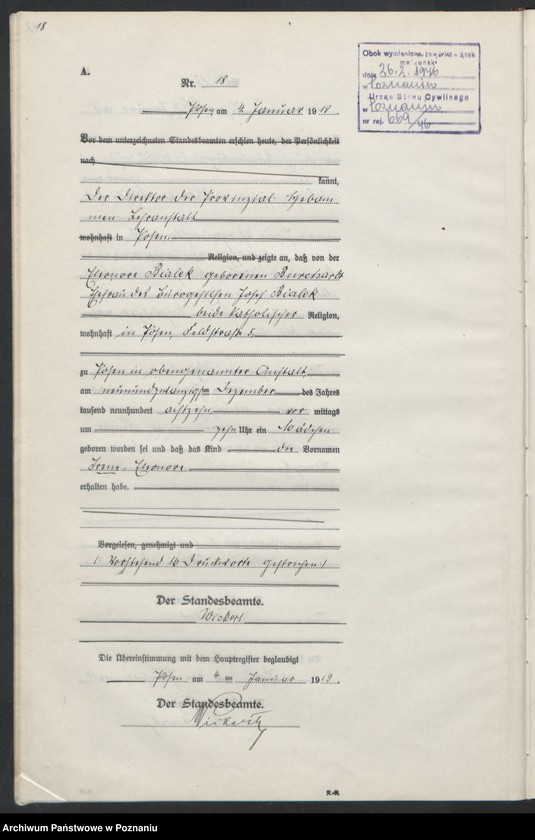 18
A.
Nr. 18
Obok wymienione
dnia 26.2.1946
w Poznaniu
Urząd Stanu Cywilnego
w Poznaniu
nr rej. 669/46
Posen am 4. Januar 1919.
Vor dem unterzeichneten Standesbeamten erschien heute, der Persönlichkeit
nach
kannt,
Der Direktor der Provinzial Hebam
men Lehranstalt
wohnhaft in Posen
Religion, und zeigte an, daß von der
Eleonore Bialek geborenen Burchardt
Ehefrau des Bürogehilfen Josef Bialek
beide katholischer Religion,
wohnhaft in Posen, Feldstraße 5
zu Posen in obengenannter Anstalt
am neunundzwanzigsten Dezember des Jahres
tausend neunhundert achtzehn vor mittags
um zehn Uhr ein Mädchen
geboren worden sei und daß das Kind die Vornamen
Irene, Eleonore
erhalten habe.
Vorgelesen, genehmigt und
(: Vorstehend 16 Druckworte gestrichen :)
Der Standesbeamte.
Wickert
Die Übereinstimmung mit dem Hauptregister beglaubigt
Posen am 4. Januar 1919.
Der Standesbeamte.
Archiwum Państwowe w Poznaniu